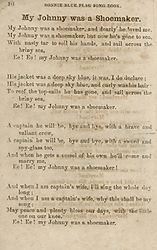 10 BONNIE BLUE FLAG SONG BOOK.
My Johnny was a Shoemaker.
My Johnny was a shoemaker, and dearly he loved me,
My Johnny was a shoemaker, but now he's gone to sea,
With nasty tar to soil his hands, and sail across the
briny sea,
Ee! Ee! my Johnny was a shoemaker.
His jacket was a deep sky blue, it was, I do declare;
His jacket was a deep sky blue, and curly was his hair
To reef the topsails he has gone, and sail across the
briny sea,
Ee! Ee! my Johnny was a shoemaker.
A captain he will be, bye and bye, with a brave and
valiant crew,
A captain he will be, bye and bye, with a sword and
spy glass too,
And when he gets a vessel of his own he'll come
marry me,
Ee! Ee! my Johnny was a shoemaker!
And when I am captain's wife, I'll sing the whole day
long;
And when I am a captain's wife, why this shall be my
song;
May peace and plenty bless our days, with the little
one on our knee,
Ee! Ee! my Johnny was a shoemaker.